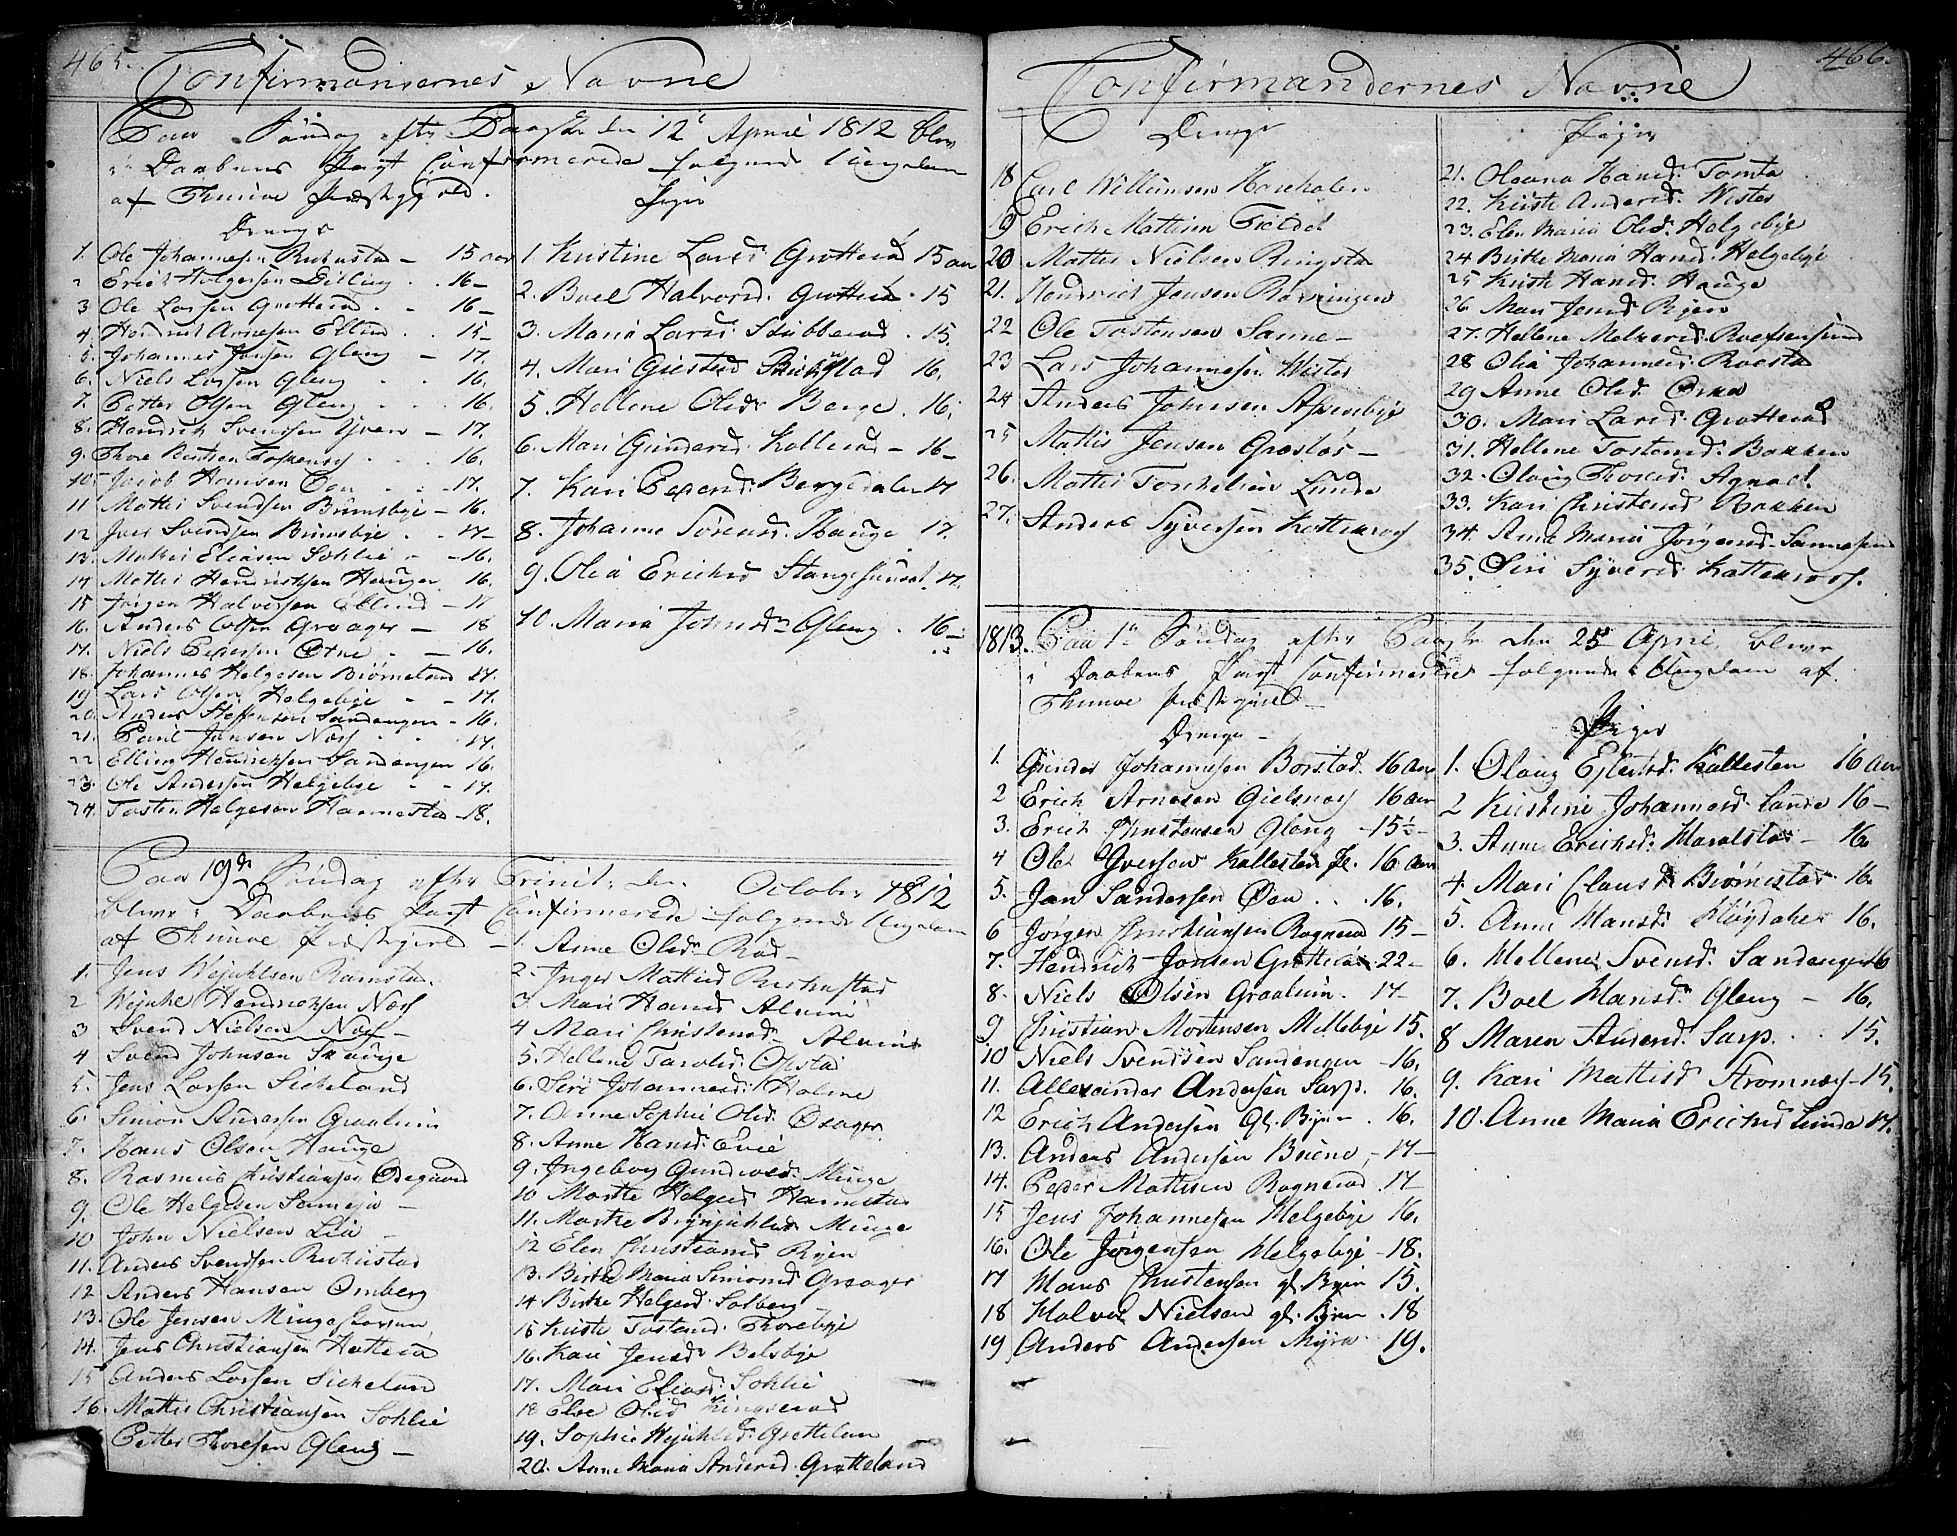 465.
Confirmandernes Navne
Paa Søndag efter Paaske den 12te April 1812 blev
i Daabens Pagt Confirmerede følgende Ungdom
af Thunøe Præstegield.
Drenge
1. Ole Johannesen Ruhustad - 15 aar
2 Erich Helgesen Dilling . . 16 -
3 Ole Larsen Grotterød . - 16 -
4 Hendrich Arnesen Ellind . 15 -
5. Johannes Jonsen Gleng - 17.
6. Niels Larsen Gleng . . 16.
7. Petter Olsen Gleng . . . 16.
8. Hendrich Svensen Tveen - 17.
9. Thore . . . 16.
10. Jacob Hansen Øen . . - 17.
11 Mathis Svendsen Brunsbye - 16.
12 Iver Svendsen Brunsbye . . 17 -
13. Mathis Eliasen Sohlie - - 16.
14 Mathis Hendrichsen Hauger 16.
15 Jörgen Halvorsen Ellind - 17
16. Anders Olsen Graager - 18
17. Niels Pedersen Ørne - - 16.
18. Johannes Helgesen Biørneland 17.
19 Lars Olsen Helgebye - - 17.
20. Anders Steffensen Sandengen - 16.
21. Paul Jonsen Næss . . 17.
22 Elling Hendrichsen Sandengen 16.
23. Ole Andersen Helgebye - - 17.
24. Tosten Helgesen Hannestad - 18.
Piger
1. Kirstine Larsd. Grotterød 15 aar
2. Boel Halvorsd. Grotterød . 15
3. Maria Larsd. Stubberød . 15.
4. Mari Giertsd 16.
5. Hellene Olsdr Berge . 16.
6. Mari Gundersd. Kollerød - 16 -
7. Kari Pedersd. Bergedalen 17
8. Johanne Sørensd. Hauge . 17.
9. Olea Erichsd Stangesundet . 17.
10. Maria Johnsdr Gleng . 16 -
Paa 19de Søndag efter Trinit: den October 1812
bleve i Daabens Pagt Confirmerede følgende Ungdom
af Thunøe Præstegield -
1. Jens Wejuhlsen Ramstad.
2 Wejuhl Hendrichsen Næss
3 Svend Nielsen Næss -
4 Svend Johnsen Skauge
5. Jens Larsen Sicheland
6. Simon Andersen Graalum
7. Hans Olsen Hauge
8. Rasmus Christiansen Ødegaard
9. Ole Helgesen Sannesø -
10 John Nielsen Lie -
11. Anders Svendsen Ruhustad
12 Anders Hansen Omberg
13. Ole Jensen Mingeskoven
14. Jens Christiansen Hatterød
15 Anders Larsen Sicheland
16. Mathis Christiansen Sohlie
Petter Thoresen Gleng -
1. Anne Olsdr Røa -
2. Inger Mathisd Ruhustad
3 Mari Hansd Alvim
4 Mari Christensd. Alvim
5. Hellene Taraldsd. Opstad
6. Siri Johannesd. Holme
7. Anne Sophie Olsd. Øraager
8. Anne Hansd. Evie
9. Ingeborg Gundersd. Minge
10 Marthe Helgesd Hannestad
11. Marthe Brynjuhlsd Minge
12 Elen Christiansd Ryen
13. Birthe Maria Simonsd Graager
14 Birthe Helgesd. Solberg
15 Kirsti Tostensd. Thorebye
16. Kari Jensd Belsbye
17. Mari Eliasd. Sohlie
18 Else Olsd Kingserød
19. Sophie Wejuhlsd. Grotteland
20. Anne Maria Andersd. Grotteland
466.
Confirmandernes Navne
Drenge
18 Carl Willumsen Hasehalen
19 Erich Mathisen Fieldet
20 Mathis Nielsen Ringstad
21. Hendrich Jensen Rørvingen
22 Ole Tostensen Sanne -
23 Lars Johannesen Wister
24 Anders Johnsen Aspenbye
25 Mathis Jensen Græslos -
26. Mathis Torchelsen Lunde
27. Anders Syversen Kattenroes
Piger
21. Oleana Hansd. Tomta
22. Kirsti Andersd. Wister
23. Elen Maria Olsd. Helgebye
24 Birthe Maria Hansd. Helgebye
25 Kirsti Hansd. Hauge
26. Mari Jensd Ryen
27. Hellene Melversd. Roefsensund
28 Olia Johannesd. Roestad
29 Anne Olsd. Orea
30. Mari Larsd. Grotterød
31. Hellene Tostensd. Bakken
32. Olaug Thoresd. Agnalt
33. Kari Christensd Bakken
34. Anne Maria Jörgensd. Sannesund
35. Siri Syversd Kattenroes.
1813. Paa 1te Søndag efter Paaske den 25de April bleve
i Daabens Pagt Confirmerede følgende Ungdom af
Thunøe Præstegield -
Drenge -
1. Gunder Johannesen Borstad. 16 Aar
2 Erich Arnesen Gielsnæs 16 aar
3. Erich Christensen Gleng - 15½ -
4 Ole Yversen Kallesten Je. 16 aar
5. Jan Sandersen Øen . . . 16.
6 Jørgen Christiansen Rognerød 15 -
7. Hendrich Jonsen Grotterød 22 -
8. Niels Olsen Graalum . 17 -
9. Christian Mortensen Mellebye 15.
10 Niels Svendsen Sandengen - 16.
11. Allexander Andersen Sarp. 16.
12 Erich Andersen Gl. Byen . 16.
13. Anders Andersen Buene, - 17 -
14. Peder Mathisen Rognerød . 17
15 Jens Johannesen Helgebye 16.
16. Ole Jørgensen Helgebye - 18.
17 Hans Christensen gl. Byen 15.
18 Halvor Nielsen gl. Byen . 18
19 Anders Andersen Myra . 19.
Piger
1. Olaug Ejlertsd. Kallesten 16 Aar
2 Kirstine Johannesd. Lunde 16 -
3. Anne Erichsd. Haralstad - 16.
4. Mari Clausdr Biørnestad 16.
5. Anne Hansd. Høgdahl 16.
6. Hellene Svensd. Sandengen 16
7. Boel Hansdr Gleng - 16.
8 Maren Andersd. Sarp. . . 15.
9. Kari Mathisd Stromnæs - 15.
10. Anne Maria Erichsd Lunde 17.